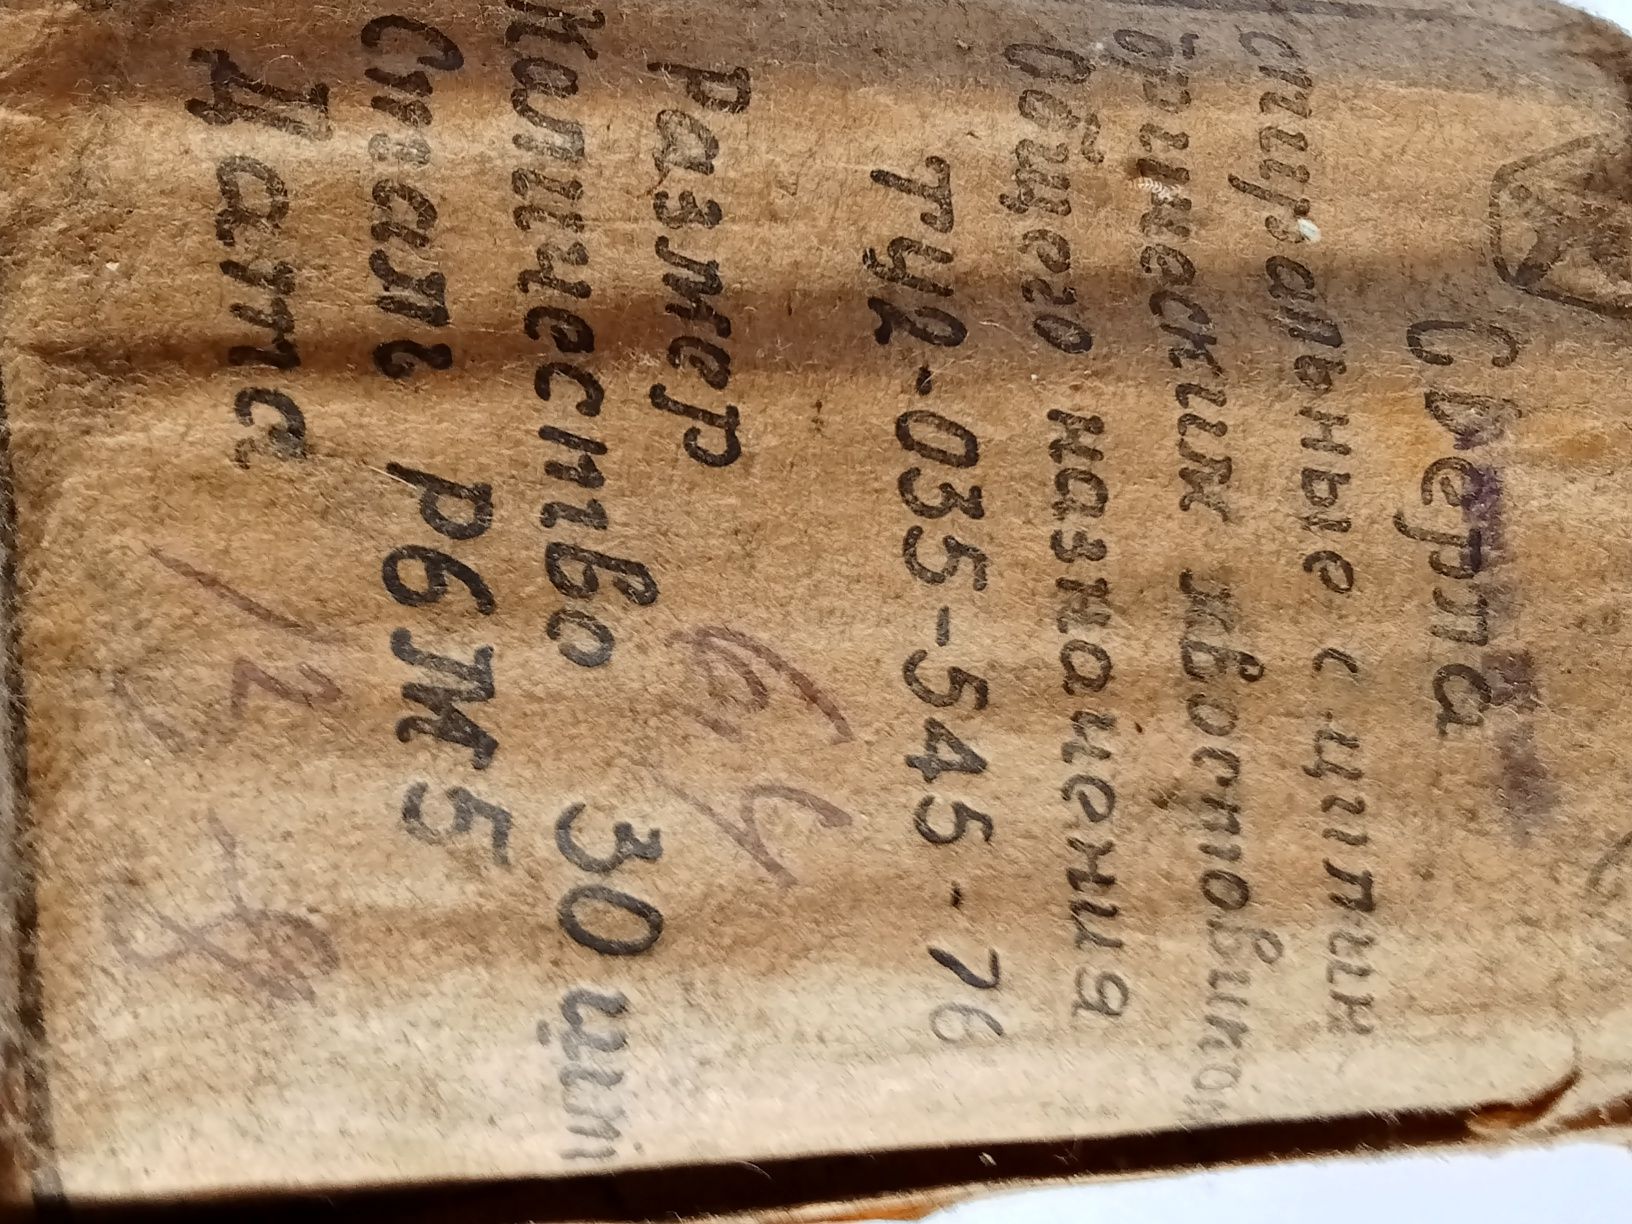 Сверла
спиральные с цилин
дрическим хвостовиком
общего назначения
ТУ2-035-545-76
Размер 6,4
Количество 30 шт
Сталь Р6М5
Дата 12